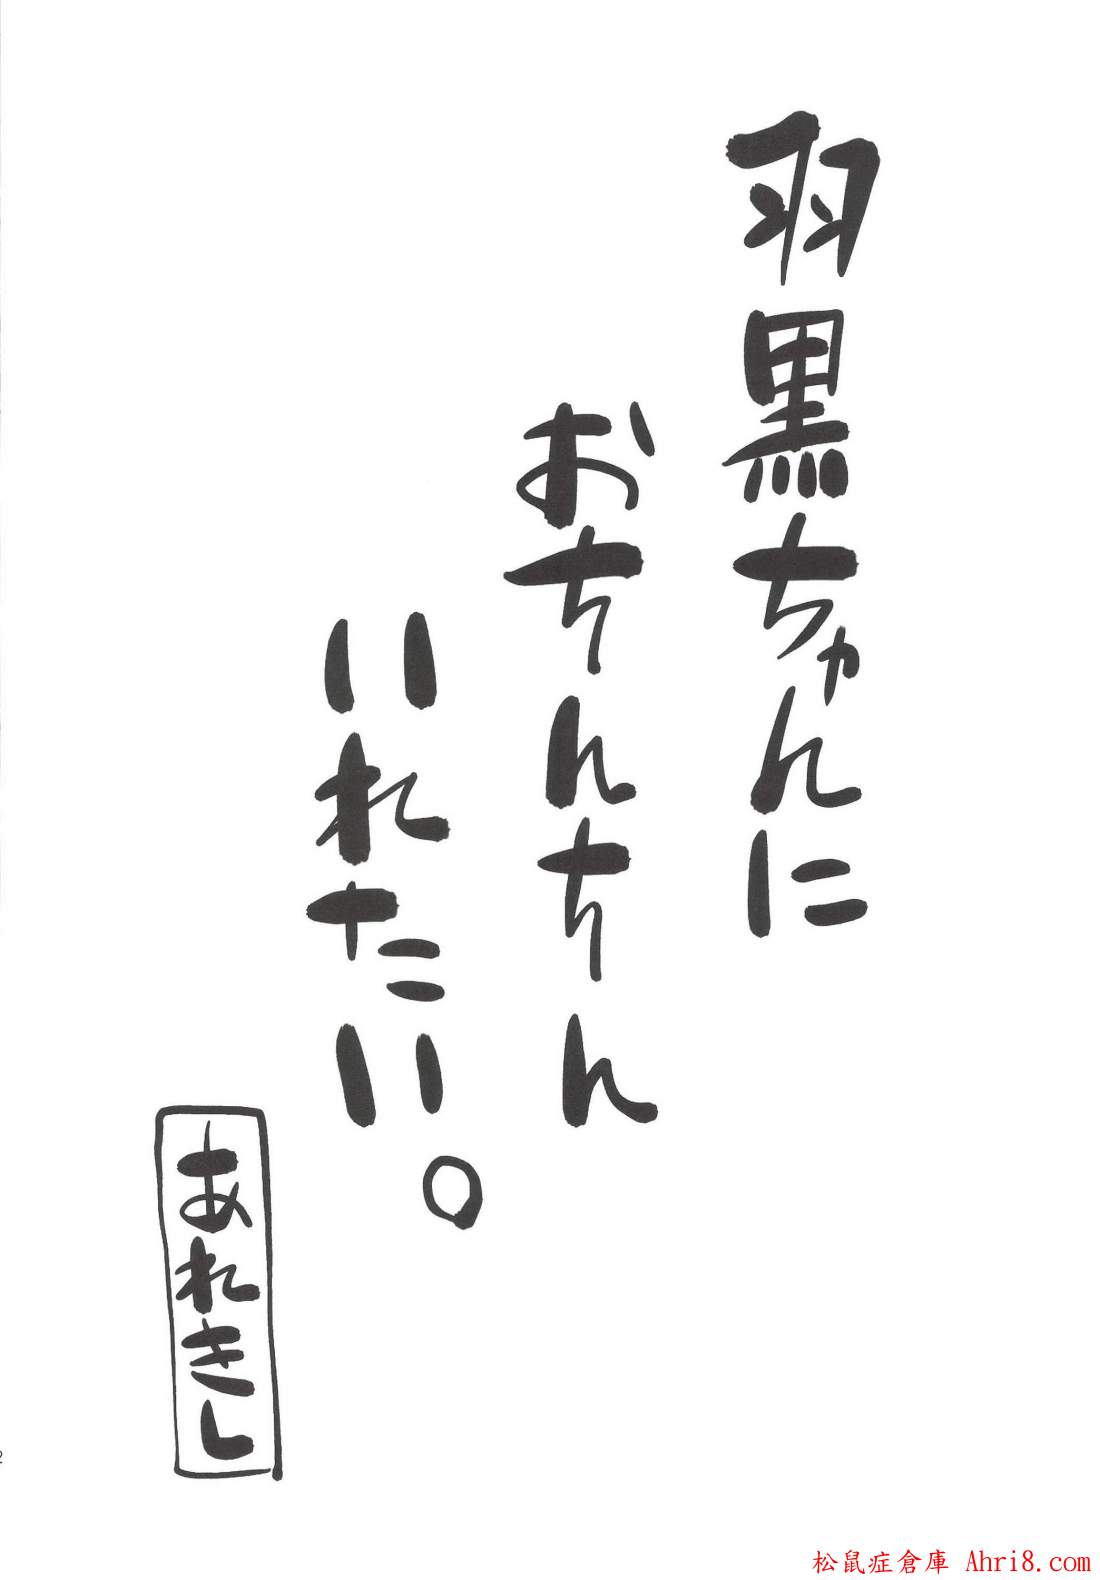 羽黒ちゃんに
おちんちん
いれたい。
あれきし
2
松鼠症倉庫 Ahri8.com